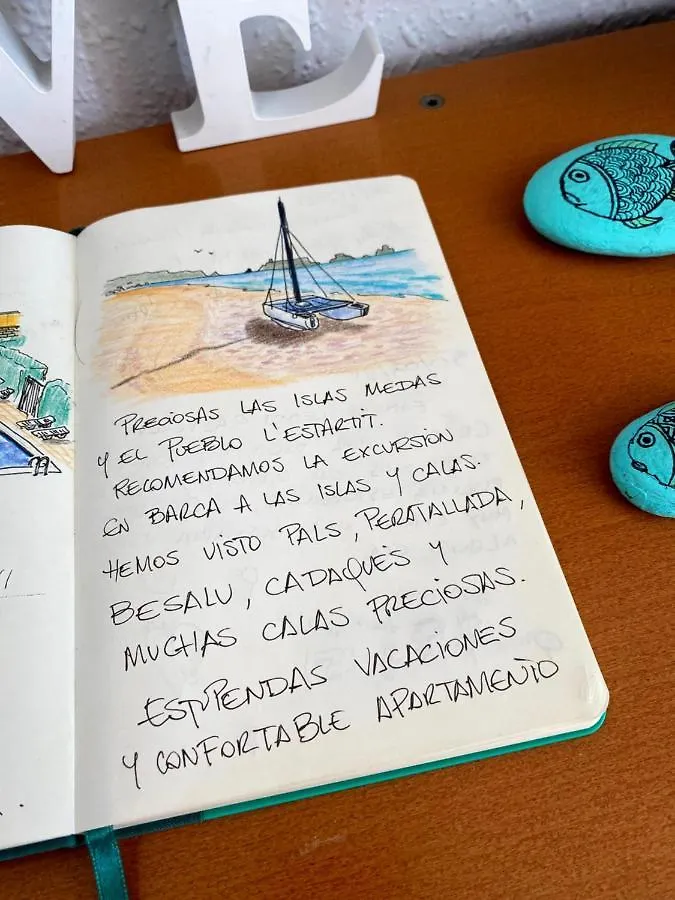 VE
PRECIOSAS LAS ISLAS MEDAS
Y EL PUEBLO L'ESTARTIT.
RECOMENDAMOS LA EXCURSIÓN
EN BARCA A LAS ISLAS Y CALAS.
HEMOS VISTO PALS, PERATALLADA,
BESALU, CADAQUÈS Y
MUCHAS CALAS PRECIOSAS.
ESTUPENDAS VACACIONES
Y CONFORTABLE APARTAMENTO